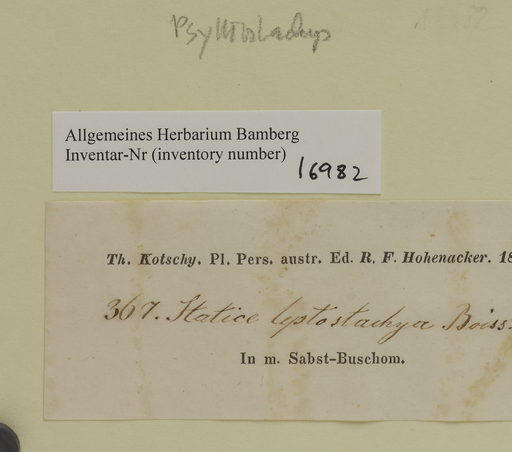 Psylliostachys
Allgemeines Herbarium Bamberg
Inventar-Nr (inventory number) 16982
Th. Kotschy. Pl. Pers. austr. Ed. R. F. Hohenacker. 18
367. Statice leptostachya Boiss.
In m. Sabst-Buschom.